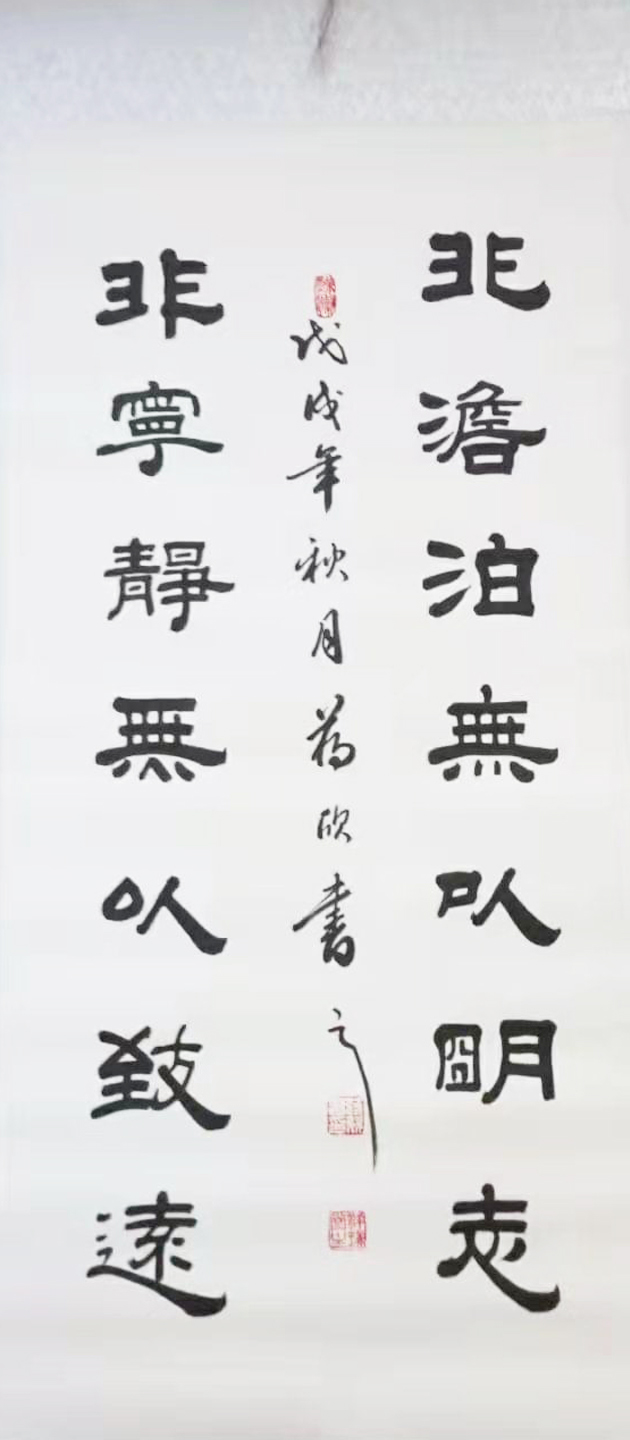 非澹泊無以明志
非寧靜無以致遠
戊戌年秋月蒋欣書之